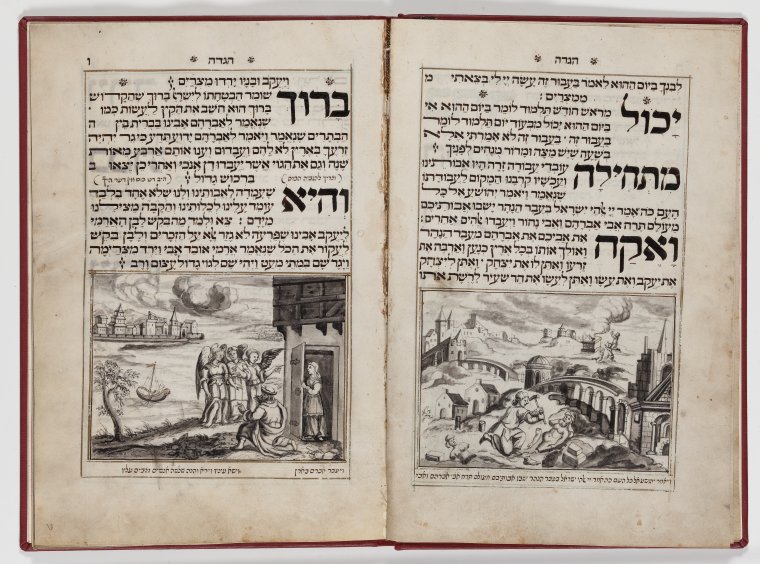 הגדה
לבנך ביום ההוא לאמר בעבור זה עשה יי לי בצאתי מ
ממצרים :
יכול מראש חודש תלמוד לומר ביום ההוא אי
ביום ההוא יכול מבעוד יום תלמוד לומר
בעבור זה בעבור זה לא אמרתי אלא
בשעה שיש מצה ומרור מנחים לפניך
מתחילה עובדי עבודה זרה היו אבותינו
ועכשיו קרבנו המקום לעבודתו
שנאמר ויאמר יהושע אל כל
העם כה אמר יי אלהי ישראל בעבר הנהר ישבו אבותיכם
מעולם תרח אבי אברהם ואבי נחור ויעבדו אלהים אחרים :
ואקח את אביכם את אברהם מעבר הנהר
ואולך אותו בכל ארץ כנען וארבה את
זרעו ואתן לו את יצחק ואתן ליצחק
את יעקב ואת עשו ואתן לעשו את הר שעיר לרשת אותו
ויאמר יהושע אל כל העם כה אמר יי אלהי ישראל בעבר הנהר ישבו אבותיכם מעולם תרח אבי אברהם ואבי
הגדה
ויעקב ובניו ירדו מצרים :
ברוך שומר הבטחתו לישראל ברוך שהקדוש
ברוך הוא חשב את הקץ לעשות כמו
שנאמר לאברהם אבינו בברית בין ה
הבתרים שנאמר ויאמר לאברהם ידוע תדע כי גר יהיה
זרעך בארץ לא להם ועבדום וענו אותם ארבע מאות
שנה וגם את הגוי אשר יעבדו דן אנכי ואחרי כן יצאו ב
ברכוש גדול :
והיא שעמדה לאבותינו ולנו שלא אחד בלבד
עומד עלינו לכלותינו והקבה מצילנו
מידם : צא ולמד מה בקש לבן הארמי
ליעקב אבינו שפרעה לא גזר אלא על הזכרים ולבן בקש
לעקור את הכל שנאמר ארמי אובד אבי וירד מצרימה
ויגר שם במתי מעט ויהי שם לגוי גדול עצום ורב :
ויעבר אברם בארץ
וישא עיניו וירא והנה שלשה אנשים נצבים עליו